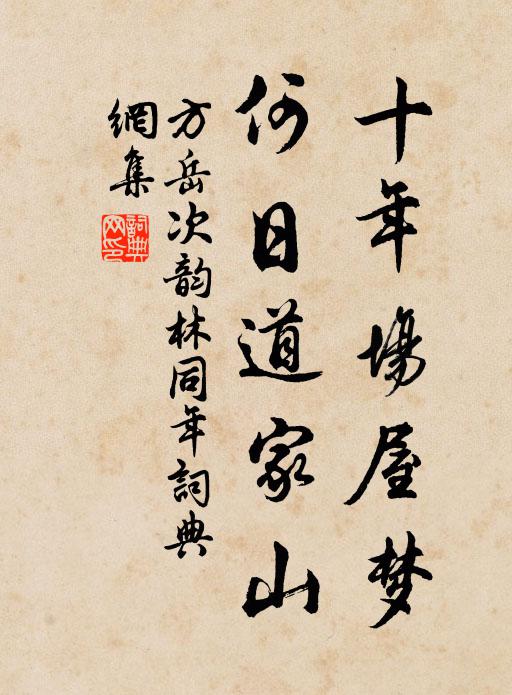 十年場屋梦
何日道家山
方岳次韵林同年詞典
網集
詞典
网印